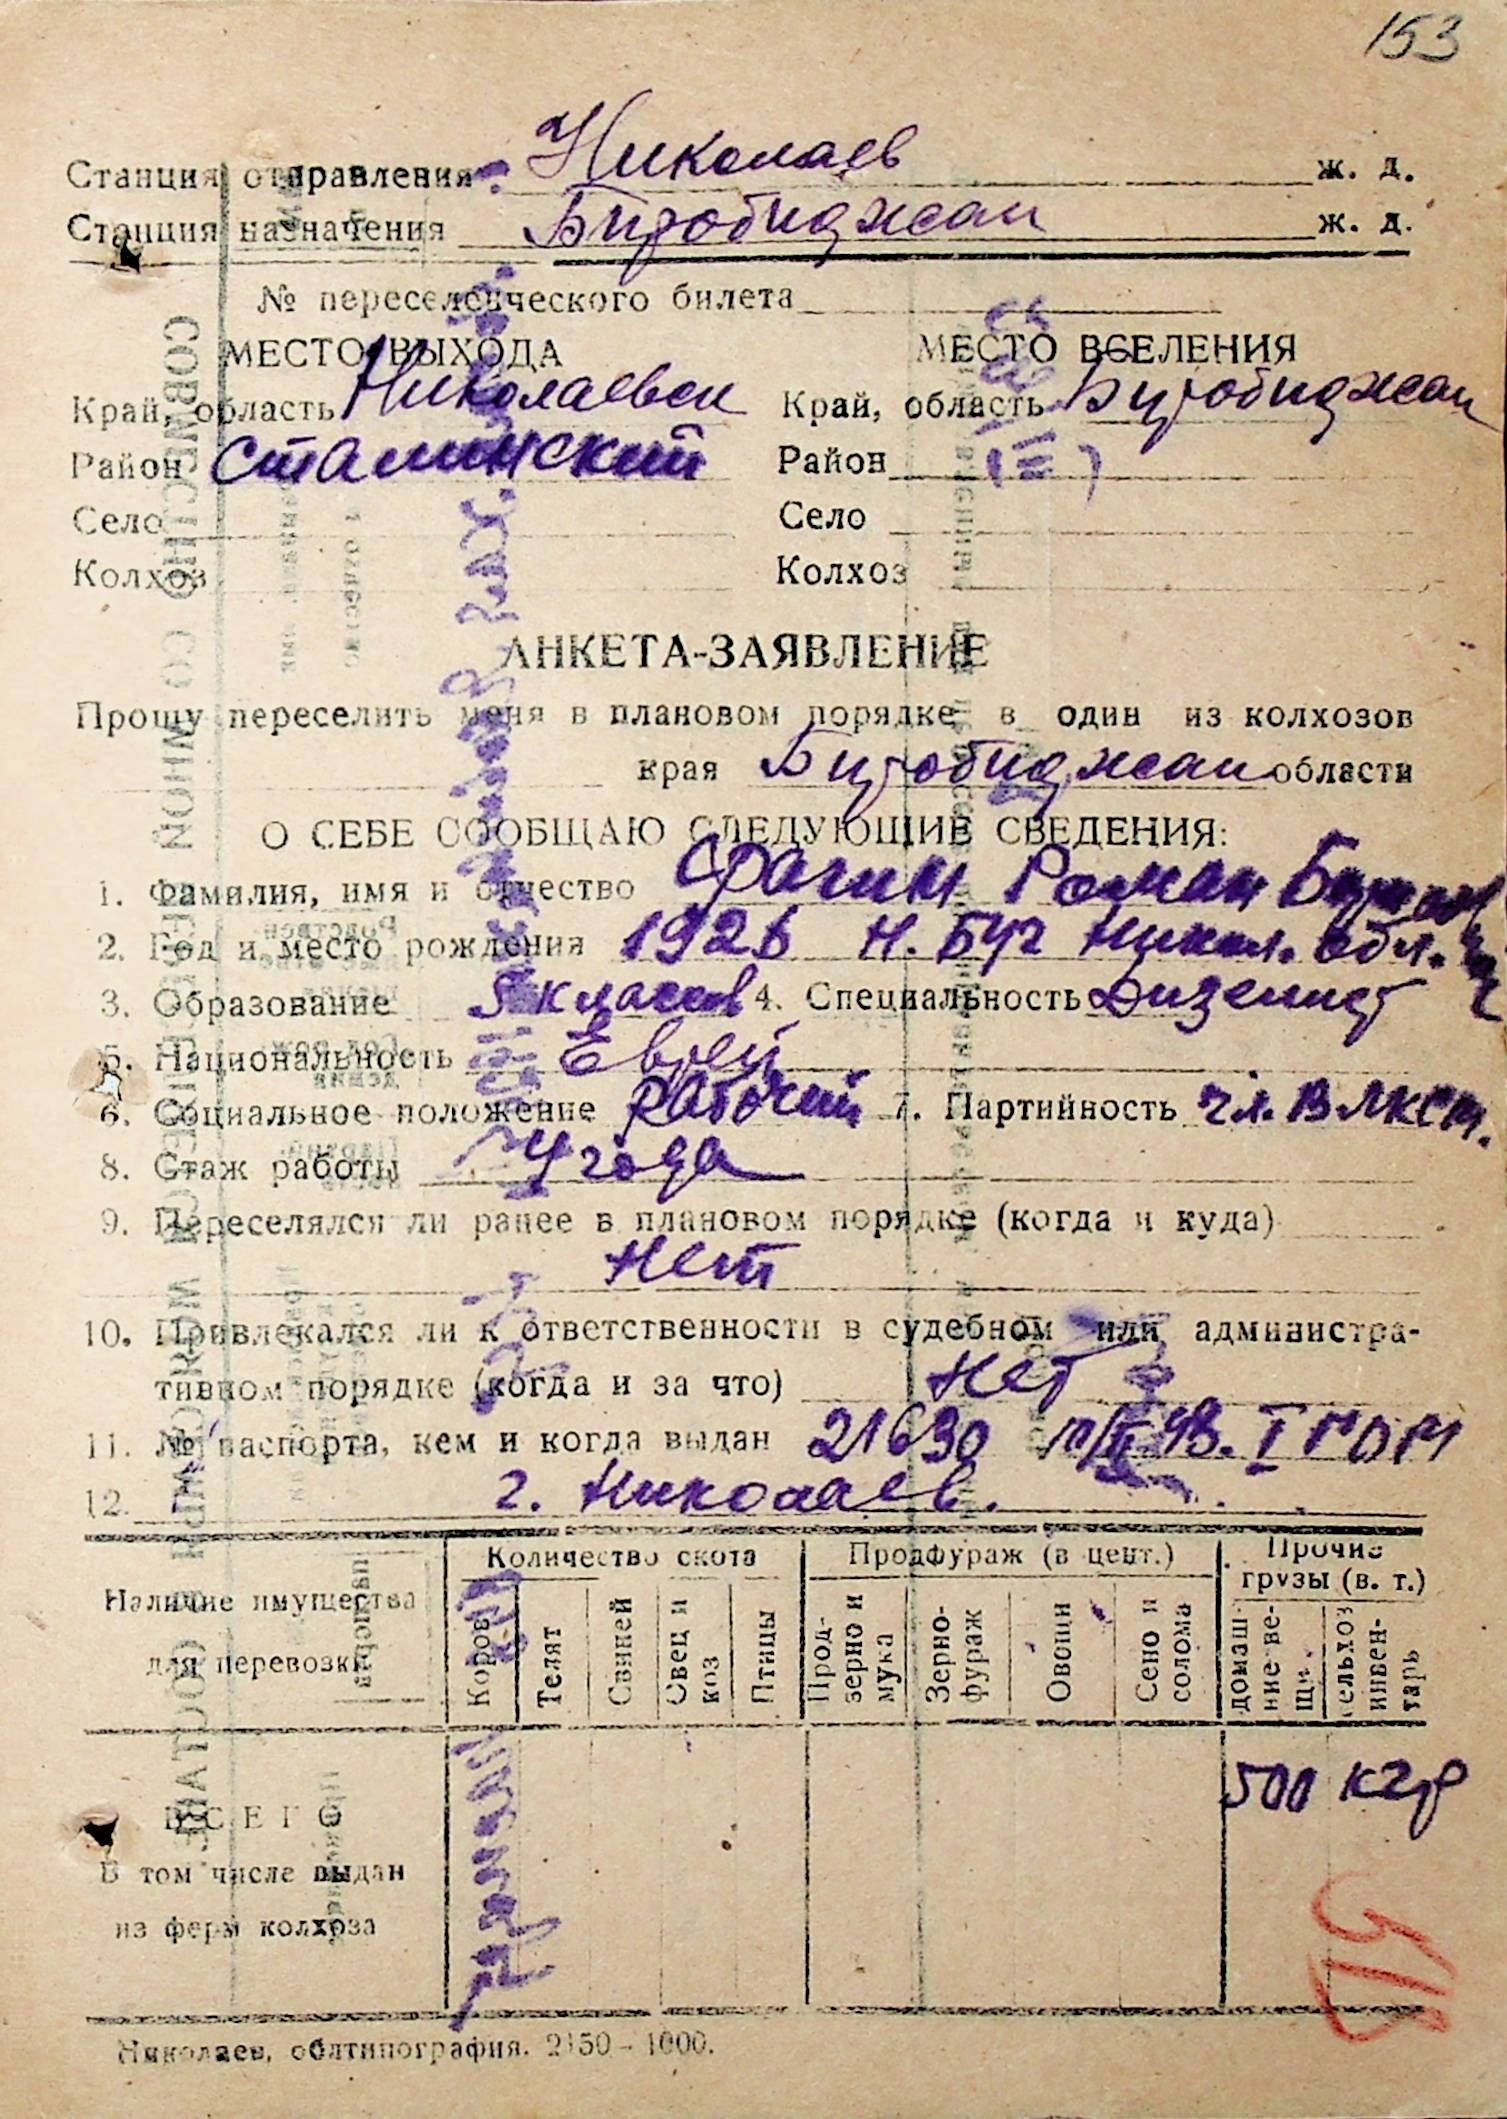 153
Станция отправления Николаев ж. д.
Станция назначения Биробиджан ж. д.
№ переселенческого билета
МЕСТО ВЫХОДА МЕСТО ВСЕЛЕНИЯ
Край, область Николаевск Край, область Биробиджан
Район Сталинский Район
Село Село
Колхоз Колхоз
АНКЕТА-ЗАЯВЛЕНИЕ
Прошу переселить меня в плановом порядке в один из колхозов
края Биробиджан области
О СЕБЕ СООБЩАЮ СЛЕДУЮЩИЕ СВЕДЕНИЯ:
1. Фамилия, имя и отчество Роман
2. Год и место рождения 1926 Н. Буг Никол. обл.
3. Образование 5 классов 4. Специальность Дизелист
5. Национальность Еврей
6. Социальное положение Рабочий 7. Партийность чл. ВЛКСМ.
8. Стаж работы 4 года
9. Переселялся ли ранее в плановом порядке (когда и куда)
Нет
10. Привлекался ли к ответственности в судебном или администра-
тивном порядке (когда и за что) Нет
11. № паспорта, кем и когда выдан 21630 I ГОМ
12. г. Николаев.
Наличие имущества для перевозки
Количество скота Продфураж (в цент.) Прочие грузы (в. т.)
Коров Телят Свиней Овец и коз Птицы Прод-зерно и мука Зерно-фураж Овощи Сено и солома домаш-ние ве-щи сельхоз инвен-тарь
ВСЕГО 500 кгр
В том числе выдан
из ферм колхоза
Николаев, облтипография. 2150 - 1000.